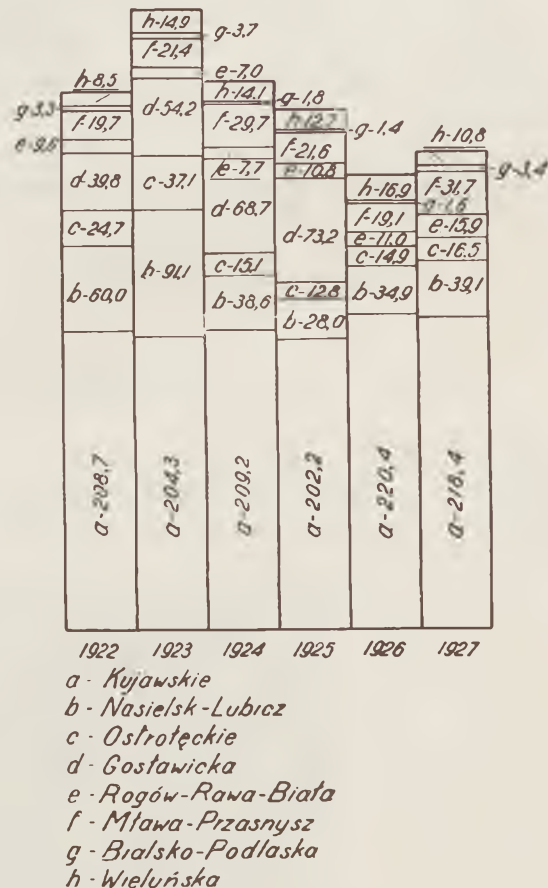 h-8,5
g-3,3
f-19,7
e-9,6
d-39,8
c-24,7
b-60,0
a-208,7
h-14,9
g-3,7
f-21,4
e-7,0
d-54,2
c-37,1
h-91,1
a-204,3
h-14,1
g-1,8
f-29,7
e-7,7
d-68,7
c-15,1
b-38,6
a-209,2
h-12,7
g-1,4
f-21,6
e-10,8
d-73,2
c-12,8
b-28,0
a-202,2
h-16,9
g-1,6
f-19,1
e-11,0
c-14,9
b-34,9
a-220,4
h-10,8
g-3,4
f-31,7
e-15,9
c-16,5
b-39,1
a-218,4
1922 1923 1924 1925 1926 1927
a - Kujawskie
b - Nasielsk-Lubicz
c - Ostrołęckie
d - Gosławicka
e - Rogów-Rawa-Biała
f - Mława-Przasnysz
g - Bialsko-Podlaska
h - Wieluńska